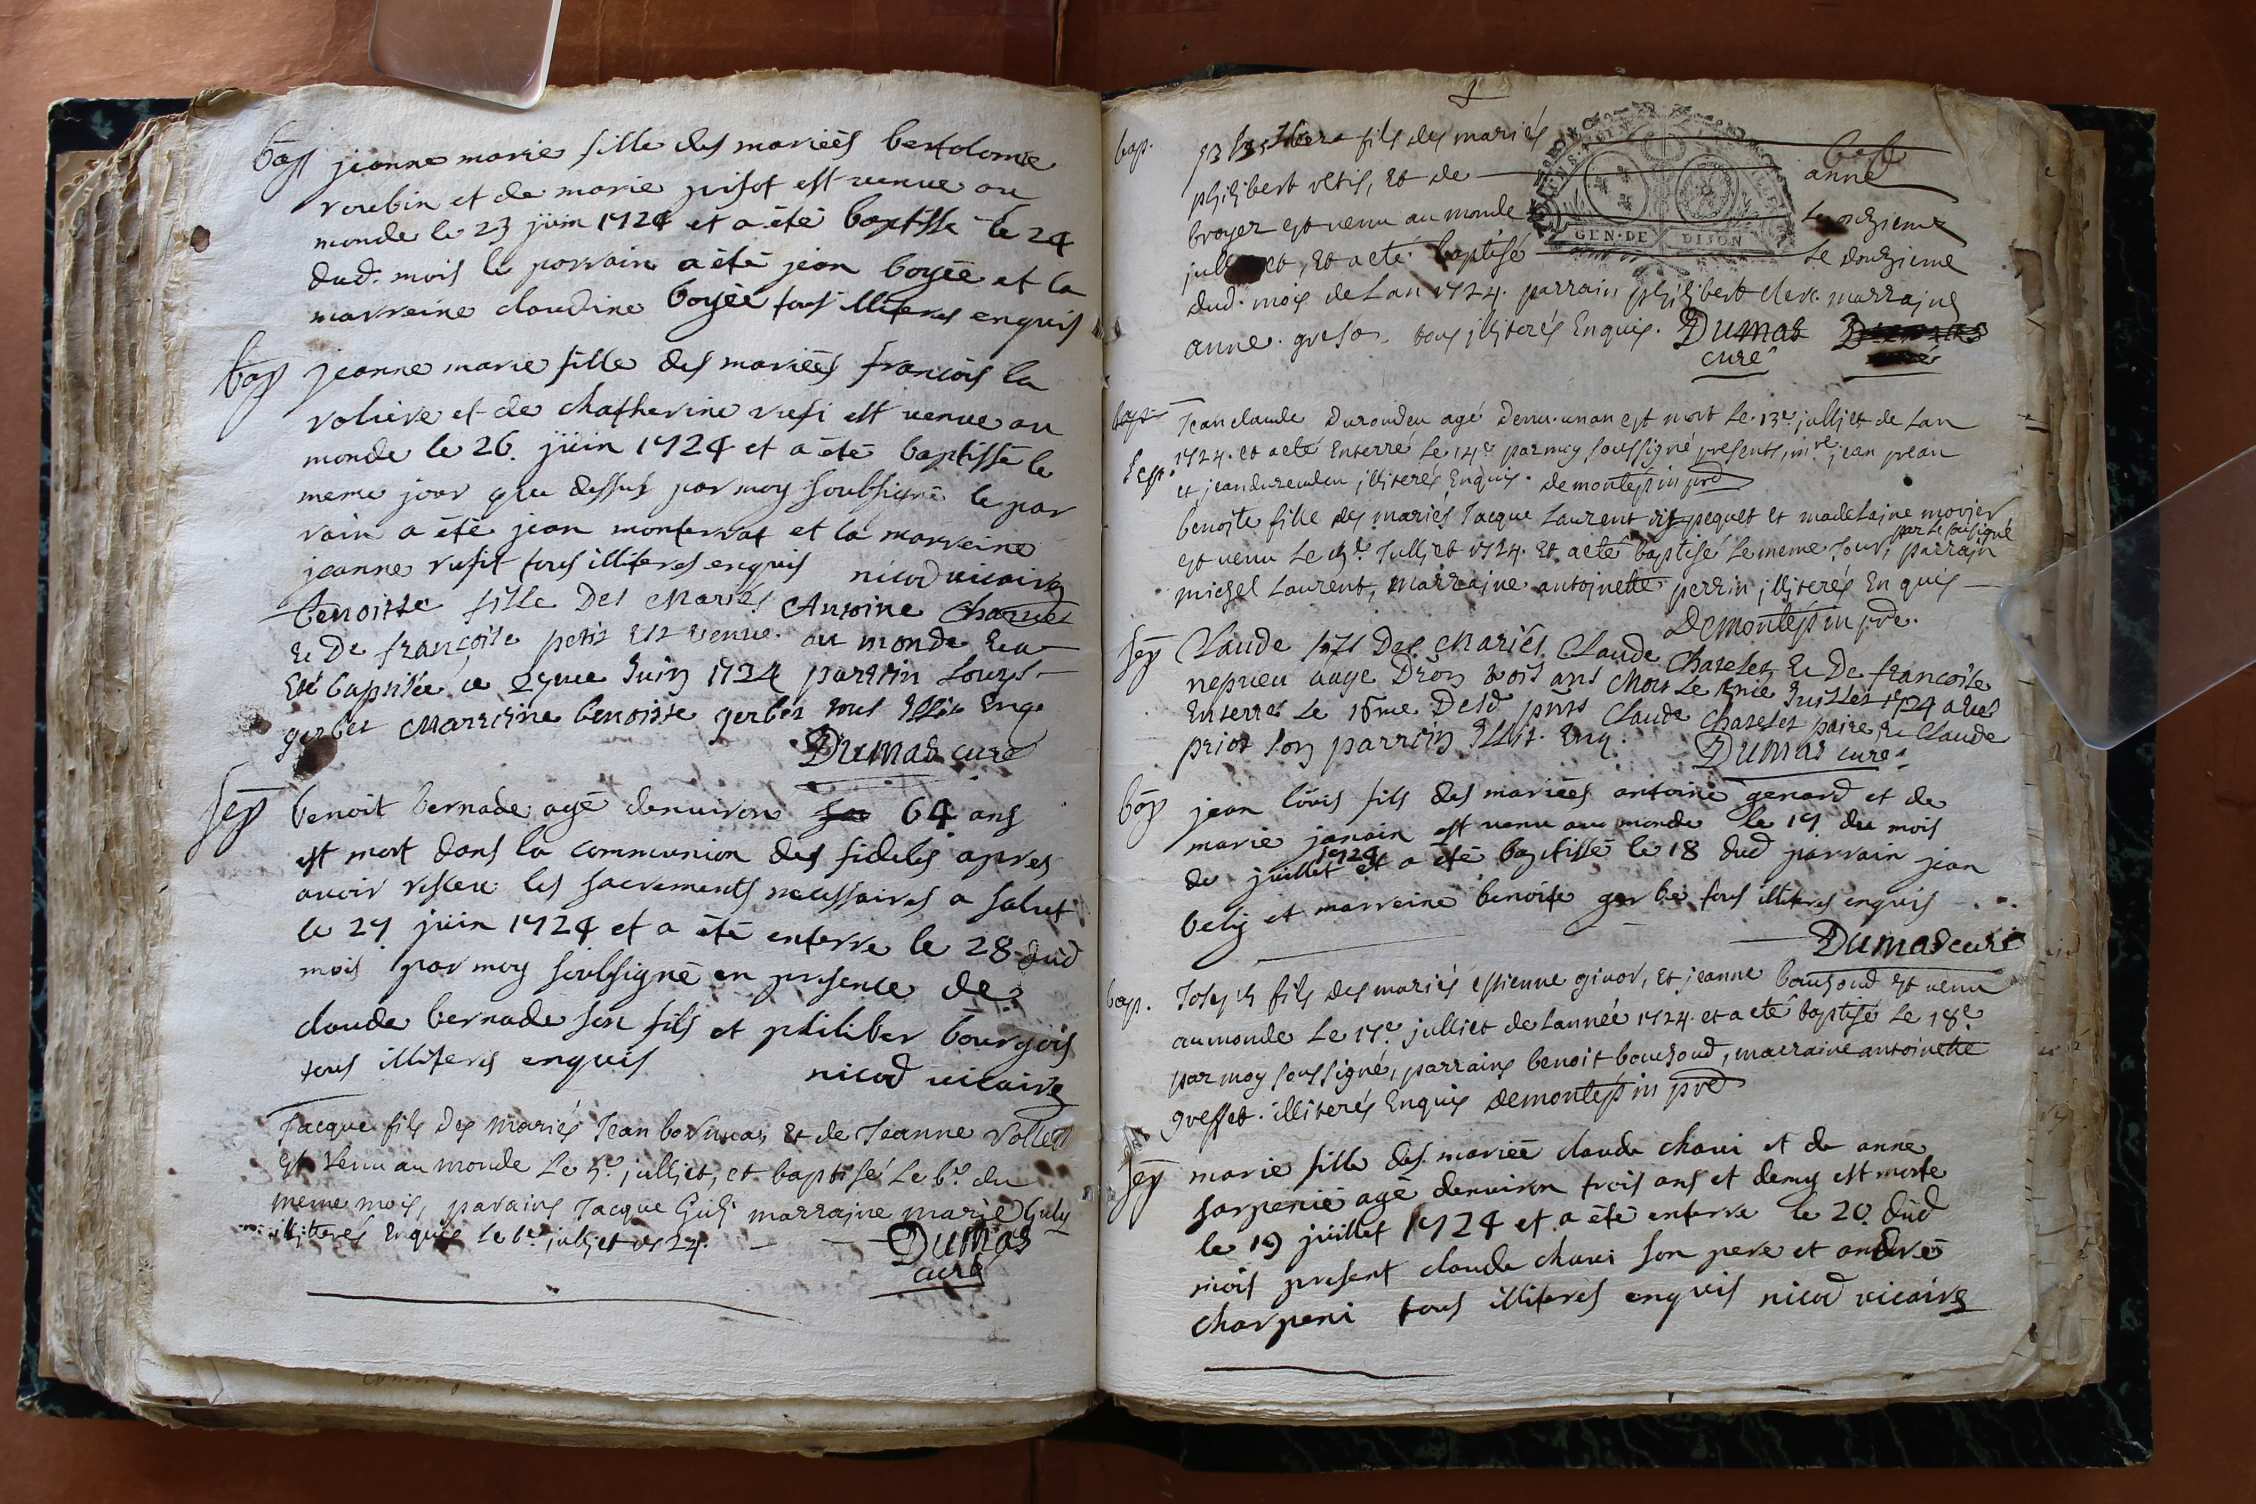 bap jeanne marie fille des mariées bertolomé
roubin et de marie prisot est venue au
monde le 23 juin 1724 et a été baptisse le 24
dud. mois le parrain a été jean boyée et la
marreine claudine boyée tous illiteres enquis
bap jeanne marie fille des mariées francois la
roliere et de chatherine rufi est venue au
monde le 26. juin 1724 et a été baptissé le
meme jour que dessus par moy soubsigné le par
rain a été jean monterrat et la marreine
jeanne rufit tous illiteres enquis nicod vicaire
benoiste fille Des Mariés Antoine Charvet
Et De francoise petit Est venue au monde Et a
Eté baptisée le Juin 1724 parrein Louys
gerbet Marreine benoiste gerbet tous Illit Enq.
Dumas curé
sep benoit bernade agé denviron 64 ans
est mort dans la communion des fideles apres
avoir resceu les sacrements necessaires a salut
le 27 juin 1724 et a été enterre le 28 dud
mois par moy soubsigné en presence de
claude bernade son fils et philiber bourgois
tous illiteres enquis nicod vicaire
Jacque fils Des Mariés Jean Et de Jeanne Vollet
Est Venu au monde Le 5e julliet, et baptisé Le 6e du
meme mois, parains Jacque Guly marrajne marie Guly
illiterés Enquis Le 6e julliet 1724.
Dumas
curé
bap. fils des mariés
philibert Et de anne
broyer est venu au monde Le onzieme
julliet, Et a eté baptisé Le Douzieme
dud. mois de Lan 1724. parrain philibert marrajne
anne. tous illiterés Enquis. Dumas
curé
bap Jean claude Durondeu agé Denv. un an est mort Le 13e julliet de Lan
Sep. 1724. et a eté Enterré Le 14e par moy soussigné presents, jean
et jean illiterés Enquis. Demontessin pre
benoite fille des mariés Jacque Laurent dit pequet et madelaine
par le sousigné
est venu Le Julliet 1724. Et a eté baptisé Le meme Jour, parrajn
michel Laurent, Marrajne antoinette perrin illiterés Enquis
Demontessin pre.
sep Claude fils Des Mariés Claude Charelet Et De francoise
nepveu aage trois ans Mort Le Juillet 1724 a Eté
Enterré Le 16me Desd pnts Claude Charelet paire Et Claude
priot son parrein Illit. Enq. Dumas curé
bap jean louis fils des mariées antoine genard et de
marie janain est venu au monde le 17 du mois
1724
de juillet et a été baptissé le 18 dud parrain jean
bely et marreine benoite gerbe tous illiteres enquis
Dumas curé
bap. Joseph fils des mariés estienne givor, Et jeanne bouchoud Est venu
au monde Le 17e julliet de Lannée 1724. et a eté baptisé Le 18e
par moy soussigné, parrains benoit bouchoud, marraine antoinette
greffet. illiterés Enquis Demontessin pre
sep marie fille des mariée claude chavi et de anne
sarpenié agé denviron trois ans et demy est morte
le 19 juillet 1724 et a été enterre le 20 dud
mois present claude chavi son pere et andré
charpeni tous illiteres enquis nicod vicaire
GEN. DE DIJON